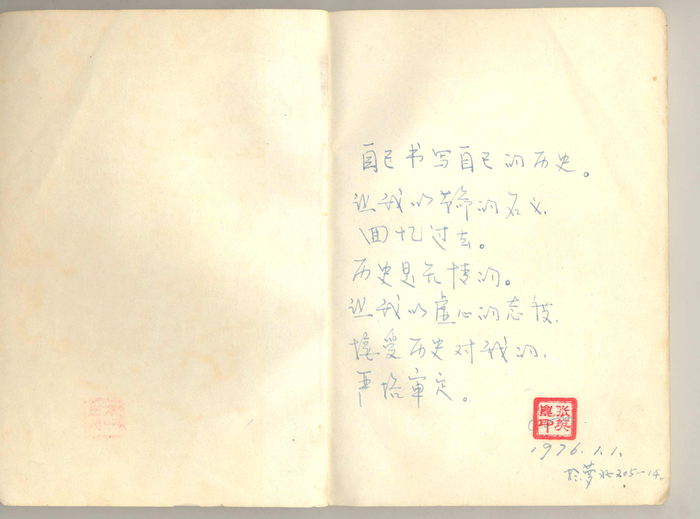 自己书写自己的历史。
让我以革命的名义,
回忆过去。
历史是无情的。
让我以虚心的态度,
接受历史对我的,
严格审定。
张英
印
1976.1.1.
於